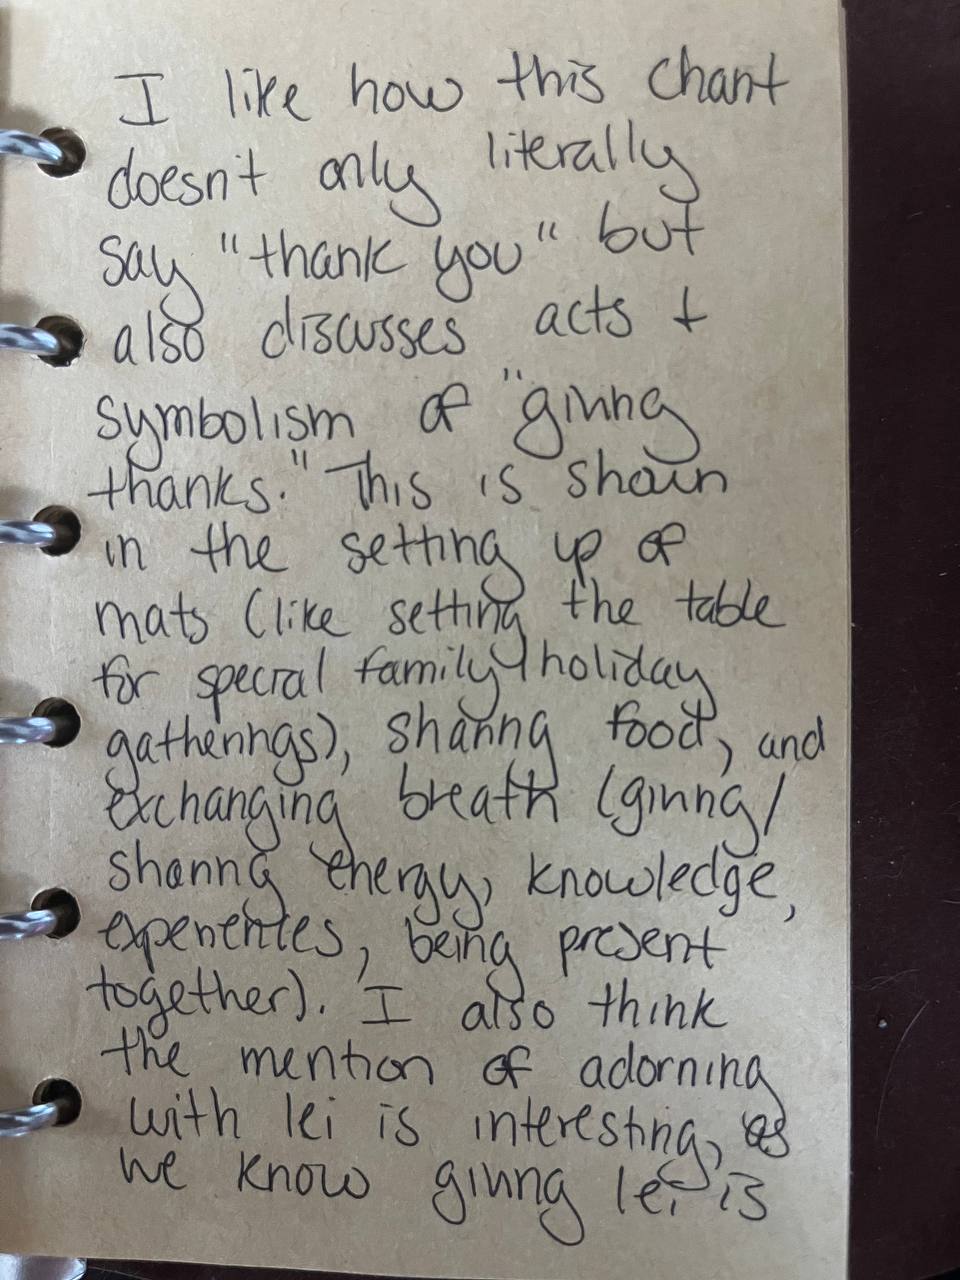 I like how this chant
doesn't only literally
say "thank you" but
also discusses acts +
symbolism of "giving
thanks." This is shown
in the setting up of
mats (like setting the table
for special family/holiday
gatherings), sharing food, and
exchanging breath (giving/
sharing energy, knowledge,
experiences, being present
together). I also think
the mention of adorning
with lei is interesting, as
we know giving lei is